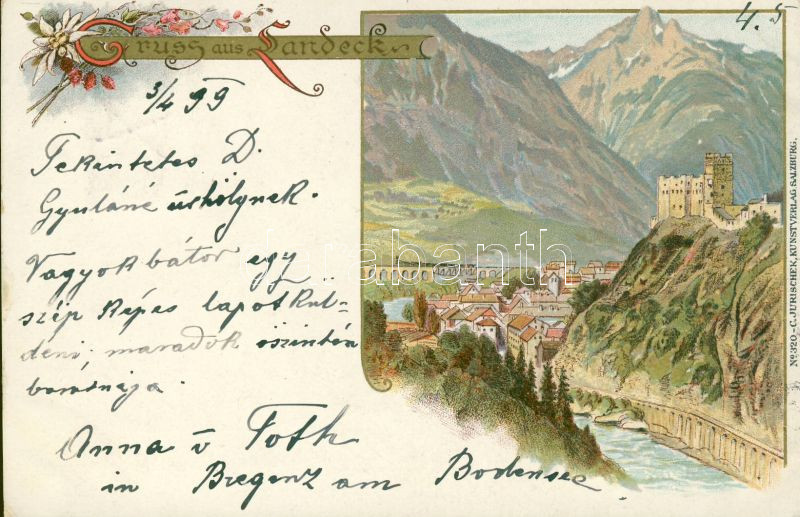 Gruss aus Landeck.
4. 5
3/4 99
Tekintetes D.
Gyuláné úrhölynek.
Vagyok bátor egy
szép képes lapot kül-
deni, maradok őszintén
barátnéja.
Anna v Toth
in Bregenz am Bodensee
No 320.-C. JURISCHEK, KUNSTVERLAG SALZBURG.
darabanth